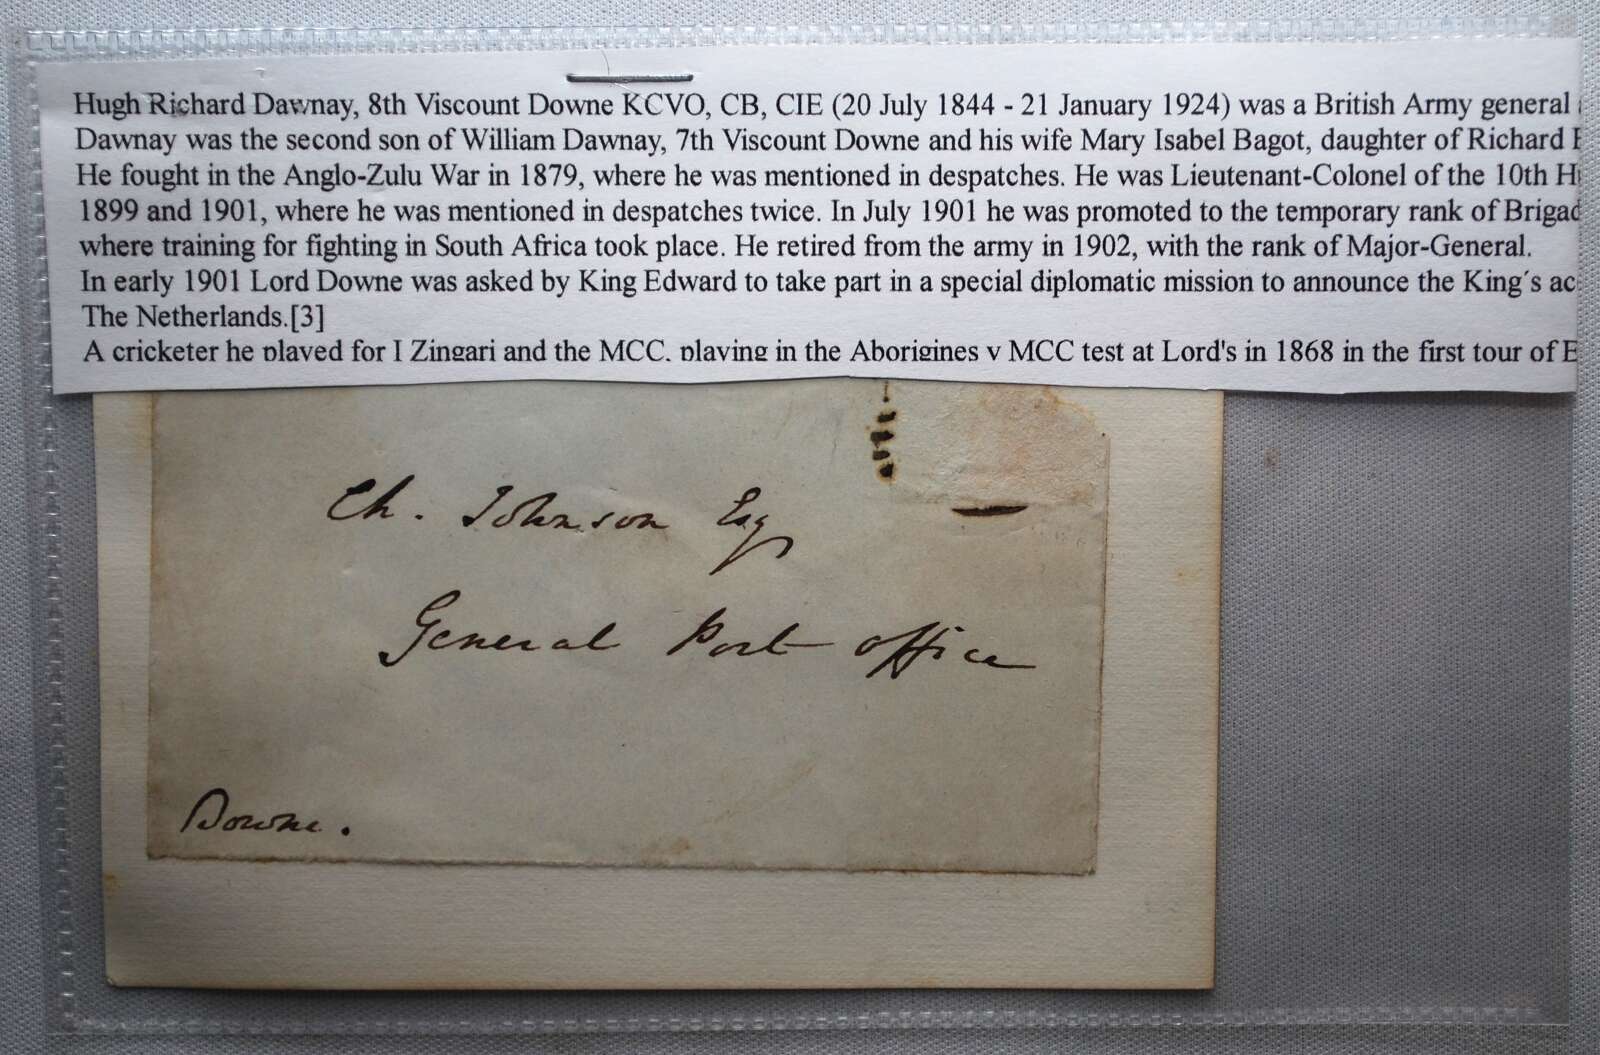 Hugh Richard Dawnay, 8th Viscount Downe KCVO, CB, CIE (20 July 1844 - 21 January 1924) was a British Army general
Dawnay was the second son of William Dawnay, 7th Viscount Downe and his wife Mary Isabel Bagot, daughter of Richard
He fought in the Anglo-Zulu War in 1879, where he was mentioned in despatches. He was Lieutenant-Colonel of the 10th
1899 and 1901, where he was mentioned in despatches twice. In July 1901 he was promoted to the temporary rank of Brigad
where training for fighting in South Africa took place. He retired from the army in 1902, with the rank of Major-General.
In early 1901 Lord Downe was asked by King Edward to take part in a special diplomatic mission to announce the King´s ac
The Netherlands.[3]
A cricketer he played for I Zingari and the MCC, playing in the Aborigines v MCC test at Lord's in 1868 in the first tour of E
Ch. Johnson Esq
General Post Office
Downe.